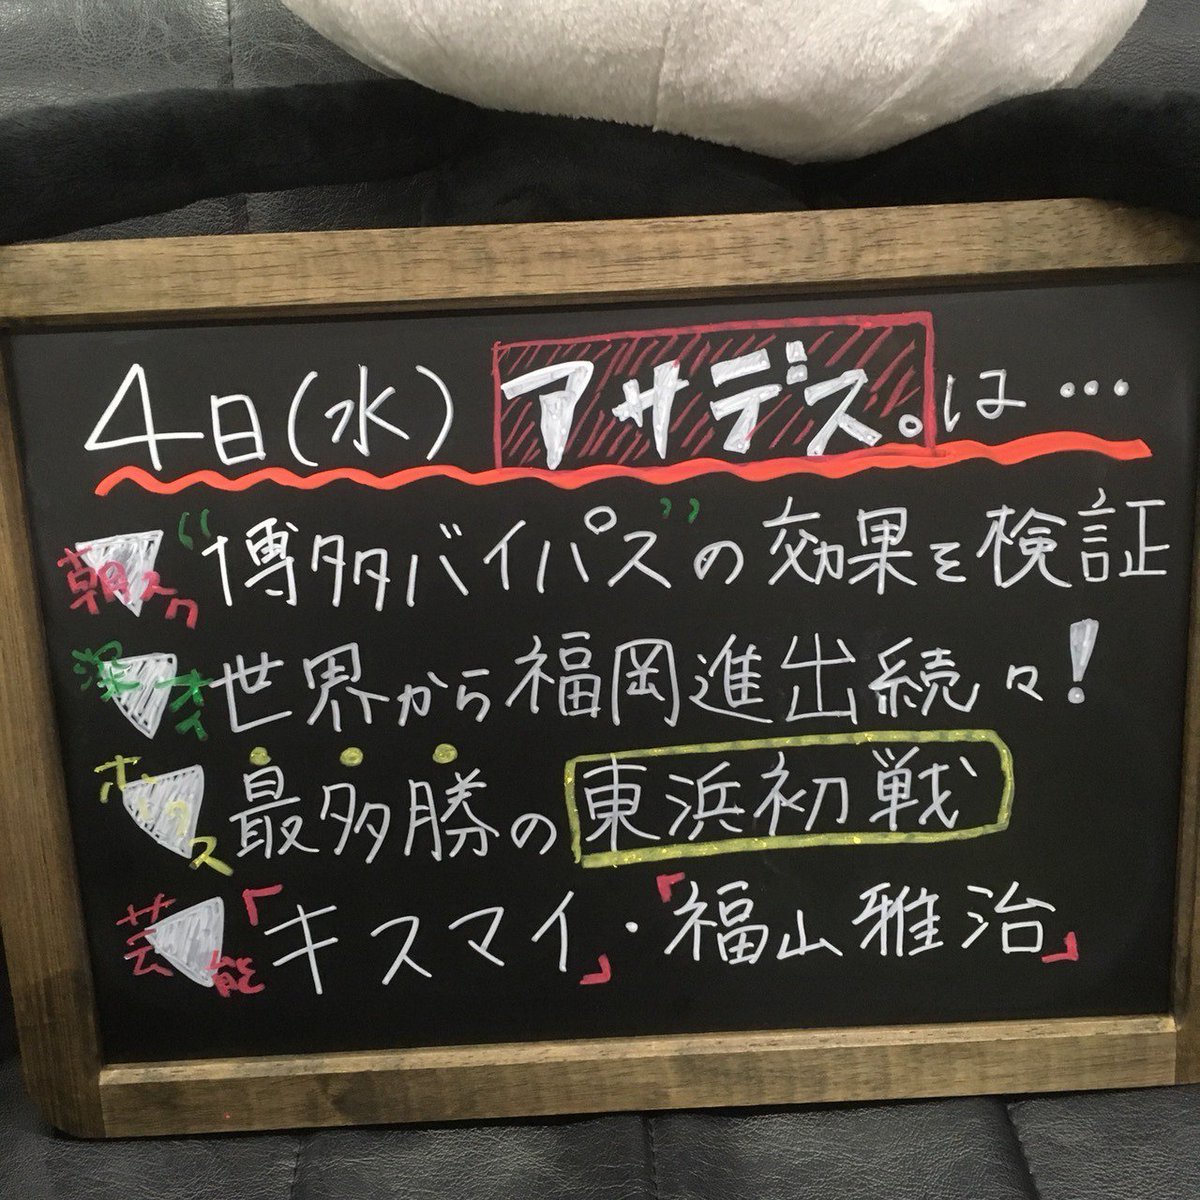 4日(水) アサデス。は…
朝スク "博多バイパス"の効果を検証
深オイ 世界から福岡進出続々!
ホークス 最多勝の東浜初戦
芸能 「キスマイ」・「福山雅治」